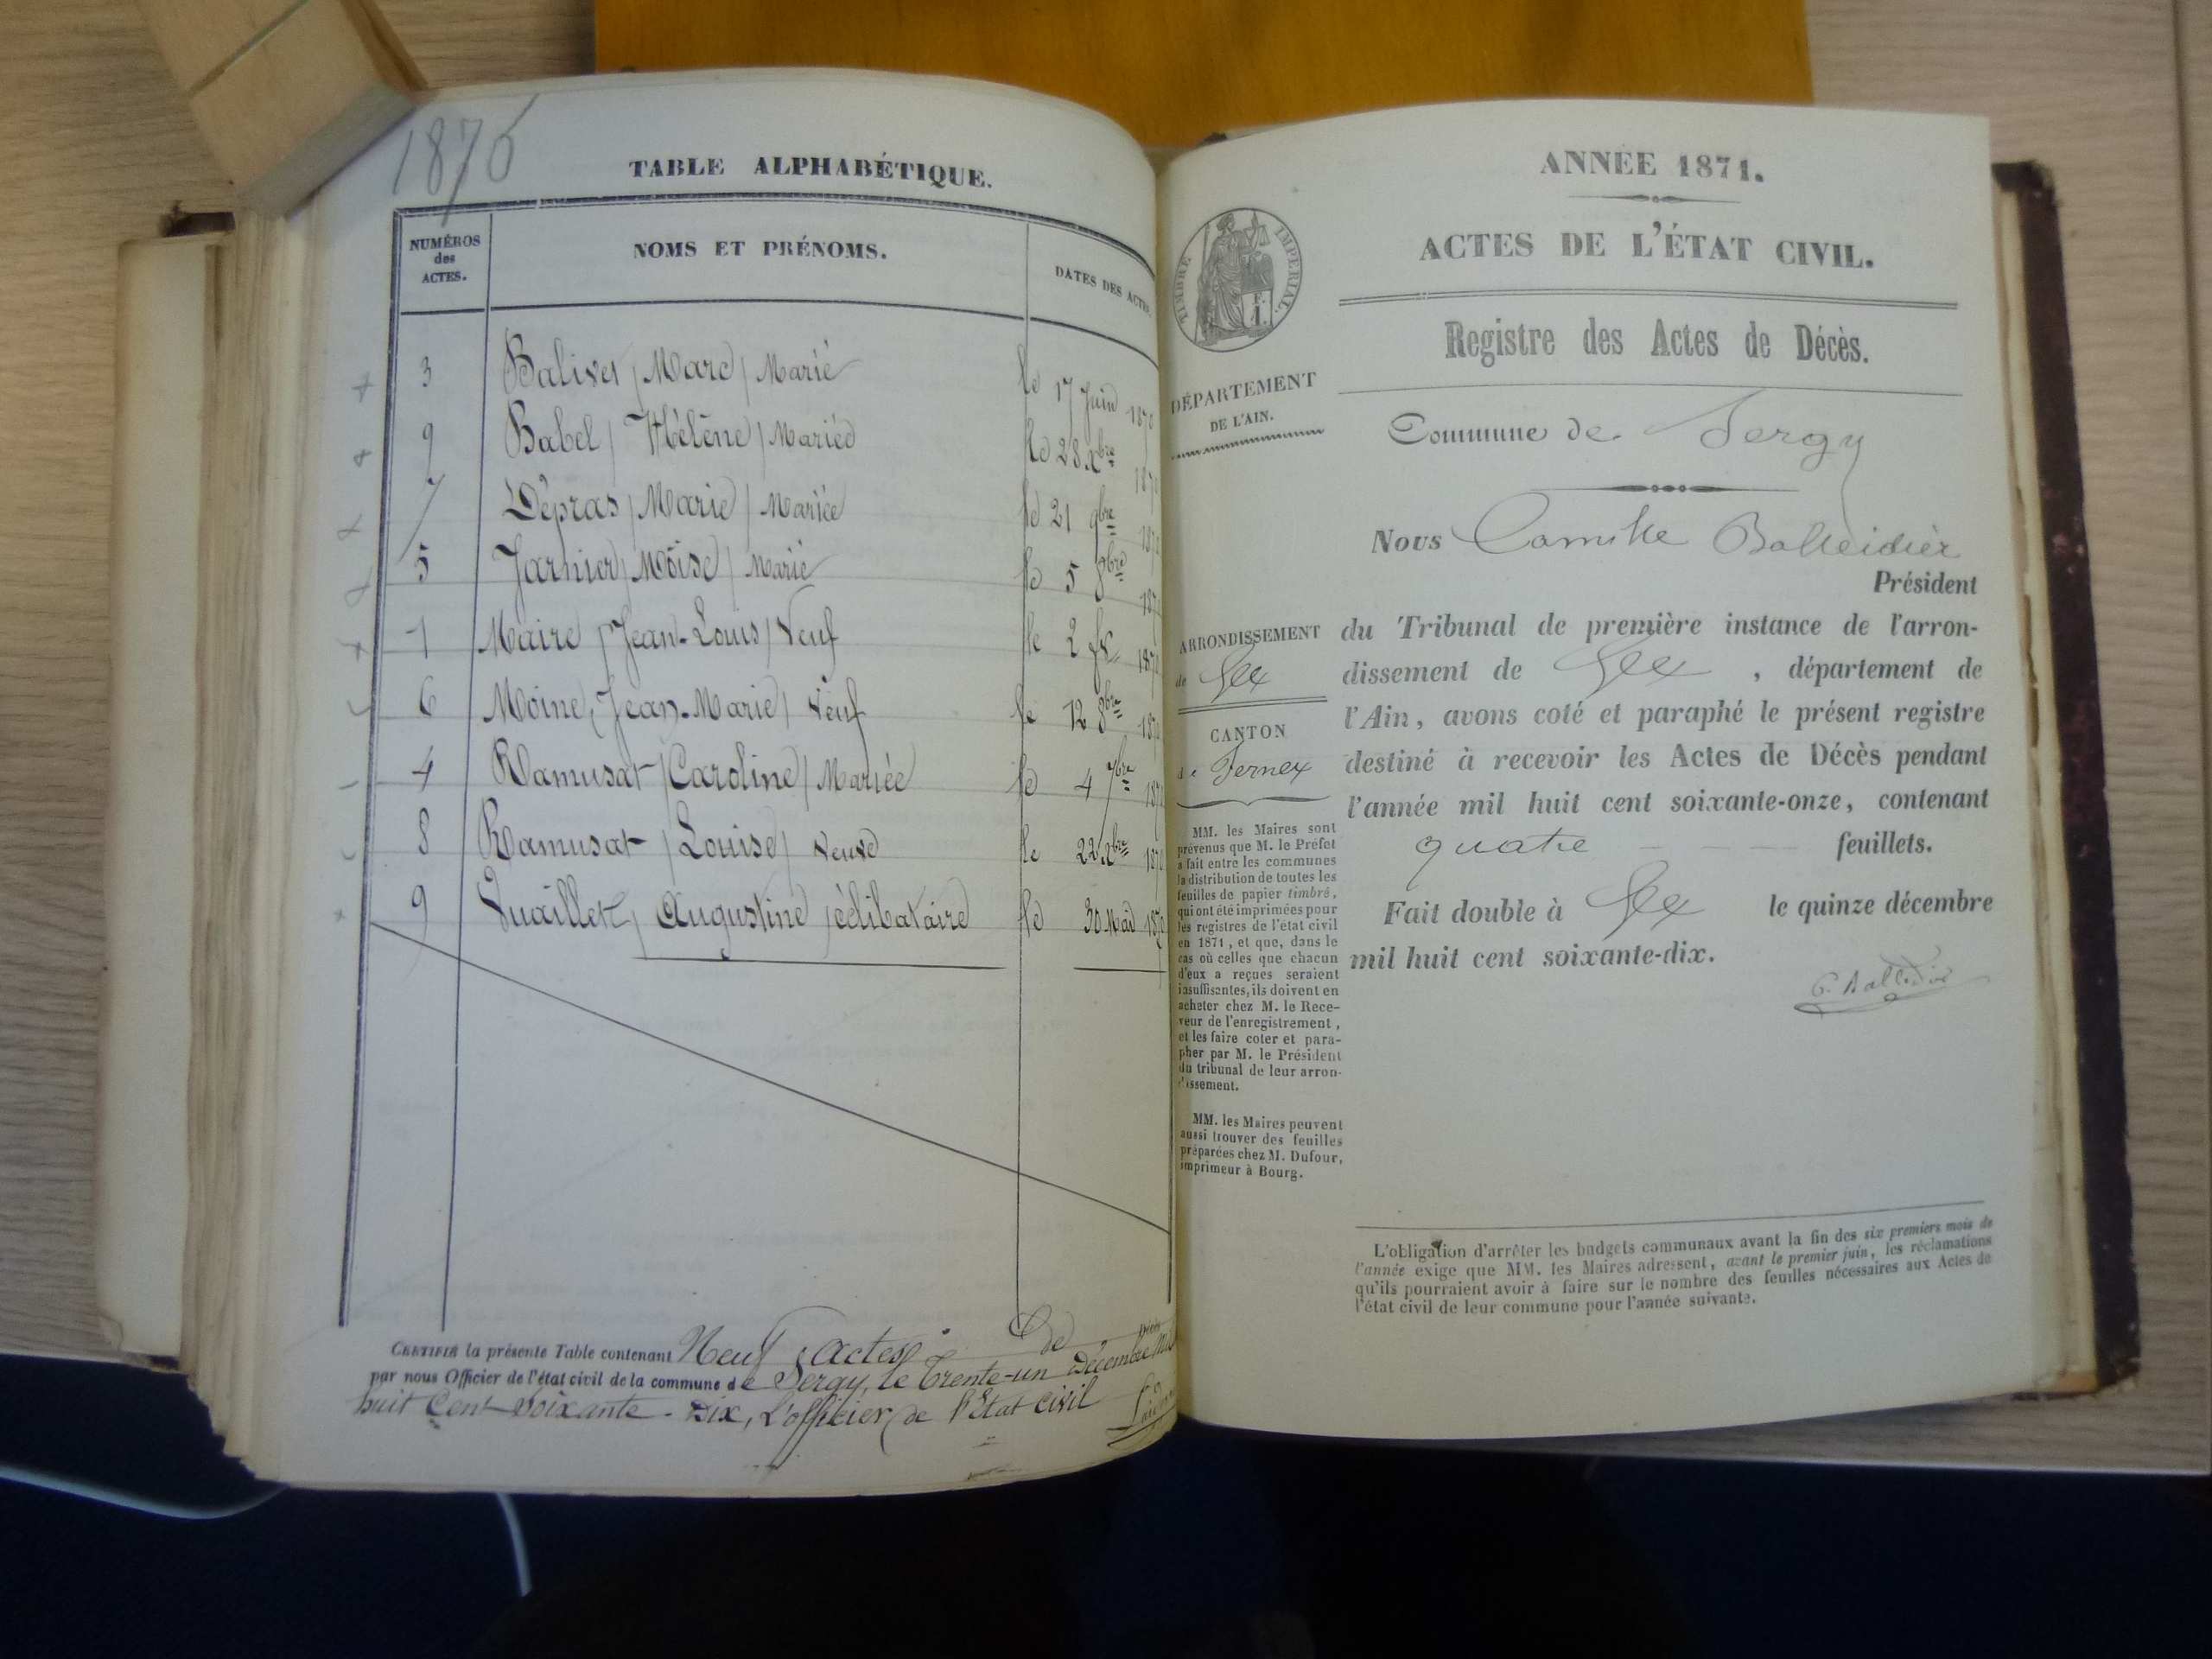 1870
TABLE ALPHABÉTIQUE.
NUMÉROS
des
ACTES.
NOMS ET PRÉNOMS.
DATES DES ACTES.
3 Balivet / Marc / Marié le 17 Juin 1870
9 Babel / Hélène / Mariée le 28 Xbre 1870
7 Dépras / Marie / Mariée le 21 9bre 1870
5 Jarnier / Moïse / Marié le 5 8bre 1870
1 Maire / Jean-Louis / Veuf le 2 1870
6 Moine, Jean-Marie / Veuf le 12 8bre 1870
4 Ramusat / Caroline / Mariée le 4 7bre 1870
8 Ramusat / Louise / veuve le 22 Xbre 1870
9 Vuaillet, Augustine / célibataire le 30 Mai 1870
CERTIFIÉ la présente Table contenant Neuf actes de Décès
par nous Officier de l'état civil de la commune de Sergy, le trente-un Décembre Mil
huit Cent Soixante-Dix, L'officier de l'État civil
ANNÉE 1871.
ACTES DE L'ÉTAT CIVIL.
Registre des Actes de Décès.
TIMBRE IMPERIAL.
F.
1.
DÉPARTEMENT
DE L'AIN.
Commune de Sergy
Nous Camille Balleidier
Président
ARRONDISSEMENT
de Gex
CANTON
de Fernex
du Tribunal de première instance de l'arron-
dissement de Gex , département de
l'Ain, avons coté et paraphé le présent registre
destiné à recevoir les Actes de Décès pendant
l'année mil huit cent soixante-onze, contenant
quatre feuillets.
Fait double à Gex le quinze décembre
mil huit cent soixante-dix.
C. Balleidier
MM. les Maires sont
prévenus que M. le Préfet
a fait entre les communes
la distribution de toutes les
feuilles de papier timbré,
qui ont été imprimées pour
les registres de l'état civil
en 1871, et que, dans le
cas où celles que chacun
d'eux a reçues seraient
insuffisantes, ils doivent en
acheter chez M. le Rece-
veur de l'enregistrement,
et les faire coter et para-
pher par M. le Président
du tribunal de leur arron-
dissement.
MM. les Maires peuvent
aussi trouver des feuilles
préparées chez M. Dufour,
imprimeur à Bourg.
L'obligation d'arrêter les budgets communaux avant la fin des six premiers mois de
l'année exige que MM. les Maires adressent, avant le premier juin, les réclamations
qu'ils pourraient avoir à faire sur le nombre des feuilles nécessaires aux Actes de
l'état civil de leur commune pour l'année suivante.